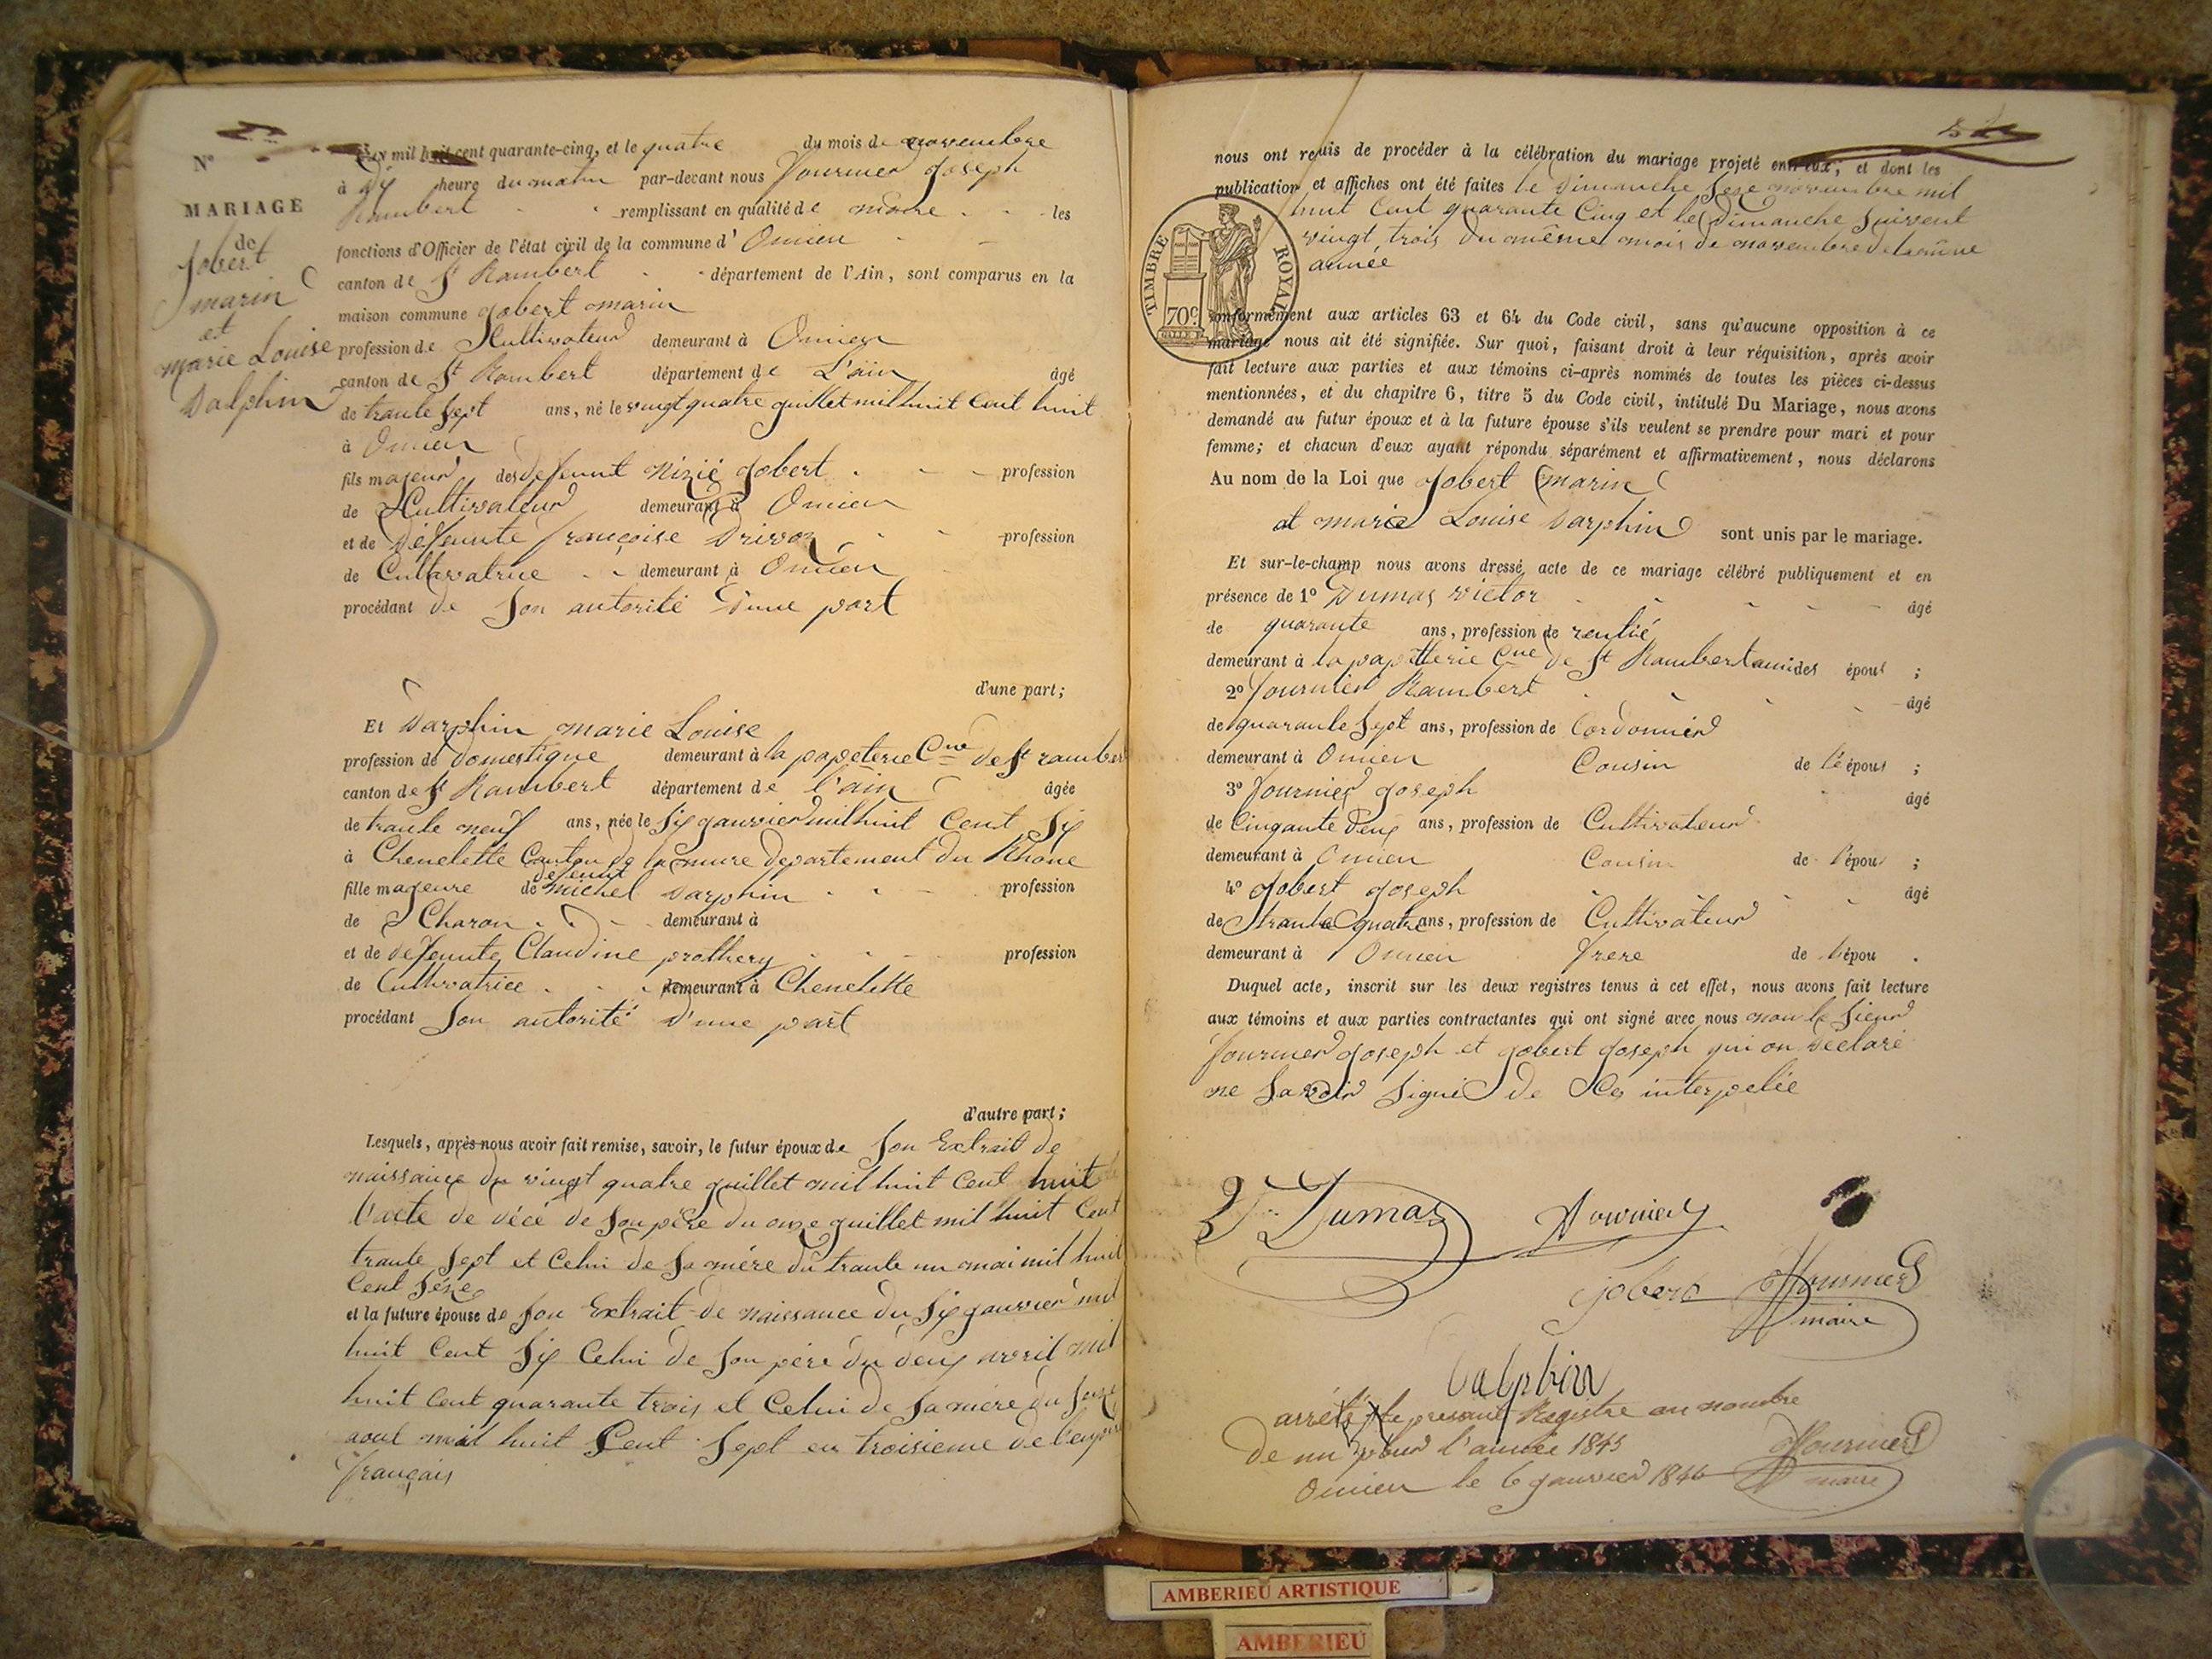 N°
MARIAGE
de
Jobert
marin
et
marie Louise
Dalphin
L'an mil huit cent quarante-cinq, et le quatre du mois de novembre
à dix heure du matin par-devant nous fournier joseph
Rambert remplissant en qualité de maire les
fonctions d'Officier de l'état civil de la commune d' Oncieu
canton de St Rambert département de l'Ain, sont comparus en la
maison commune jobert marin
profession de Cultivateur demeurant à Oncieu
canton de St Rambert département de L'ain âgé
de trante sept ans, né le vingt quatre juillet mil huit Cent huit
à Oncieu
fils majeur des defeunt nizié jobert profession
de Cultivateur demeurant à Oncieu
et de défeunte françoise Drivon profession
de Cultavatrice demeurant à Oncieu
procédant de Son autorité d'une part
d'une part;
Et Darphin marie Louise
profession de domestique demeurant à la papeterie Cne de St ramber
canton de St Rambert département de l'ain âgée
de trante neuf ans, née le Six janvier mil huit Cent Six
à Chenelette Canton de la mure departement du Rhone
defeunt
fille majeure de michel Darphin profession
de Charon demeurant à
et de défeunte Claudine prothery profession
de Cultivatrice demeurant à Chenelette
procédant Son autorité d'une part
d'autre part;
Lesquels, après nous avoir fait remise, savoir, le futur époux de Son Extrait de
naissance du vingt quatre juillet mil huit Cent huit
l'acte de décé de Son père du onze juillet mil huit Cent
trante Sept et Celui de Sa mére du trante un mai mil huit
Cent Séze
et la future épouse de Son Extrait de naissance du Six janvier mil
huit Cent Six Celui de Son pére du deux avril mil
huit Cent quarante trois et Celui de Sa mére du
aout mil huit Cent Sept en troisieme de l'empire
français
nous ont requis de procéder à la célébration du mariage projeté entr'eux; et dont les
publication et affiches ont été faites le Dimanche Seze novembre mil
huit Cent quarante Cinq et le Dimanche Suivent
vingt trois du même mois de novembre de la même
année
TIMBRE ROYAL
70c
conformément aux articles 63 et 64 du Code civil, sans qu'aucune opposition à ce
mariage nous ait été signifiée. Sur quoi, faisant droit à leur réquisition, après avoir
fait lecture aux parties et aux témoins ci-après nommés de toutes les pièces ci-dessus
mentionnées, et du chapitre 6, titre 5 du Code civil, intitulé Du Mariage, nous avons
demandé au futur époux et à la future épouse s'ils veulent se prendre pour mari et pour
femme; et chacun d'eux ayant répondu séparément et affirmativement, nous déclarons
Au nom de la Loi que jobert marin
et marie Louise Darphin sont unis par le mariage.
Et sur-le-champ nous avons dressé acte de ce mariage célébré publiquement et en
présence de 1° Dumas victor âgé
de quarante ans, profession de rentié
demeurant à la papetterie Cne de St Rambert ami des épous ;
2° fournier Rambert âgé
de quarante Sept ans, profession de Cordonnier
demeurant à Oncieu Cousin de l'épous ;
3° fournier joseph âgé
de Cinqante deux ans, profession de Cultivateur
demeurant à Oncieu Cousin de l'épou ;
4° jobert joseph âgé
de trante quatre ans, profession de Cultivateur
demeurant à Oncieu frere de l'épou .
Duquel acte, inscrit sur les deux registres tenus à cet effet, nous avons fait lecture
aux témoins et aux parties contractantes qui ont signé avec nous non le Sieur
fournier joseph et jobert joseph qui on déclaré
ne Savoir Signé de Ces interpelée
V. Dumas
fournier
jobert
fournier
maire
Dalphin
arrété le present Registre au nombre
de un pour l'année 1845
Oncieu le 6 janvier 1846
fournier
maire
AMBERIEU ARTISTIQUE
AMBERIEU